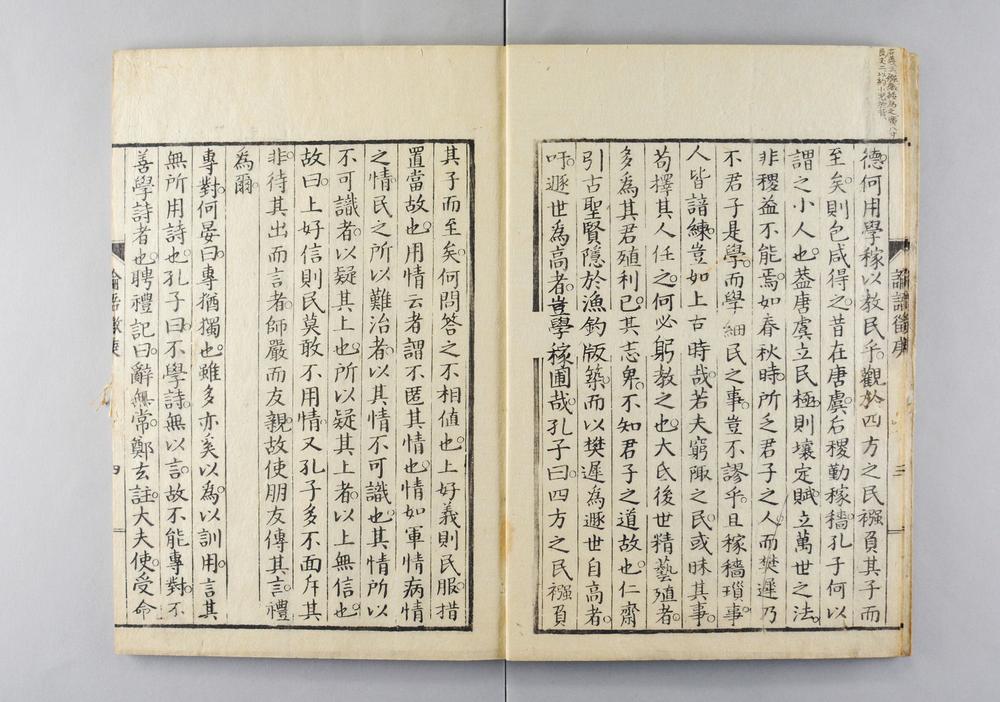 德何用學稼以教民乎。觀於四方之民襁負其子而
至矣。則包咸得之。昔在唐虞。后稷勤稼穡。孔子何以
謂之小人也。蓋唐虞立民極。則壤定賦。立萬世之法。
非稷益不能焉。如春秋時。所之君子之人而樊遲乃
不君子是學。而學細民之事。豈不謬乎。且稼穡瑣事
人皆諳練。豈如上古時哉。若夫窮陬之民。或昧其事。
苟擇其人任之。何必躬教之也。大氐後世精藝殖者。
多為其君殖利已。其志卑。不知君子之道故也。仁齋
引古聖賢隱於漁釣版築。而以樊遲為遯世自高者。
吁。遯世為高者。豈學稼圃哉。孔子曰。四方之民襁負
論語徵庚
三
其子而至矣。何問答之不相值也。上好義則民服。措
置當故也。用情云者。謂不匿其情也。情如軍情病情
之情。民之所以難治者。以其情不可識也。其情所以
不可識者。以疑其上也。所以疑其上者。以上無信也。
故曰。上好信則民莫敢不用情。又孔子多不面斥其
非。待其出而言者。師嚴而友親。故使朋友傳其言。禮
為爾。
專對。何晏曰。專猶獨也。雖多亦奚以為。以訓用。言其
無所用詩也。孔子曰。不學詩。無以言。故不能專對。不
善學詩者也。聘禮記曰。辭無常。鄭玄註。大夫使。受命
四